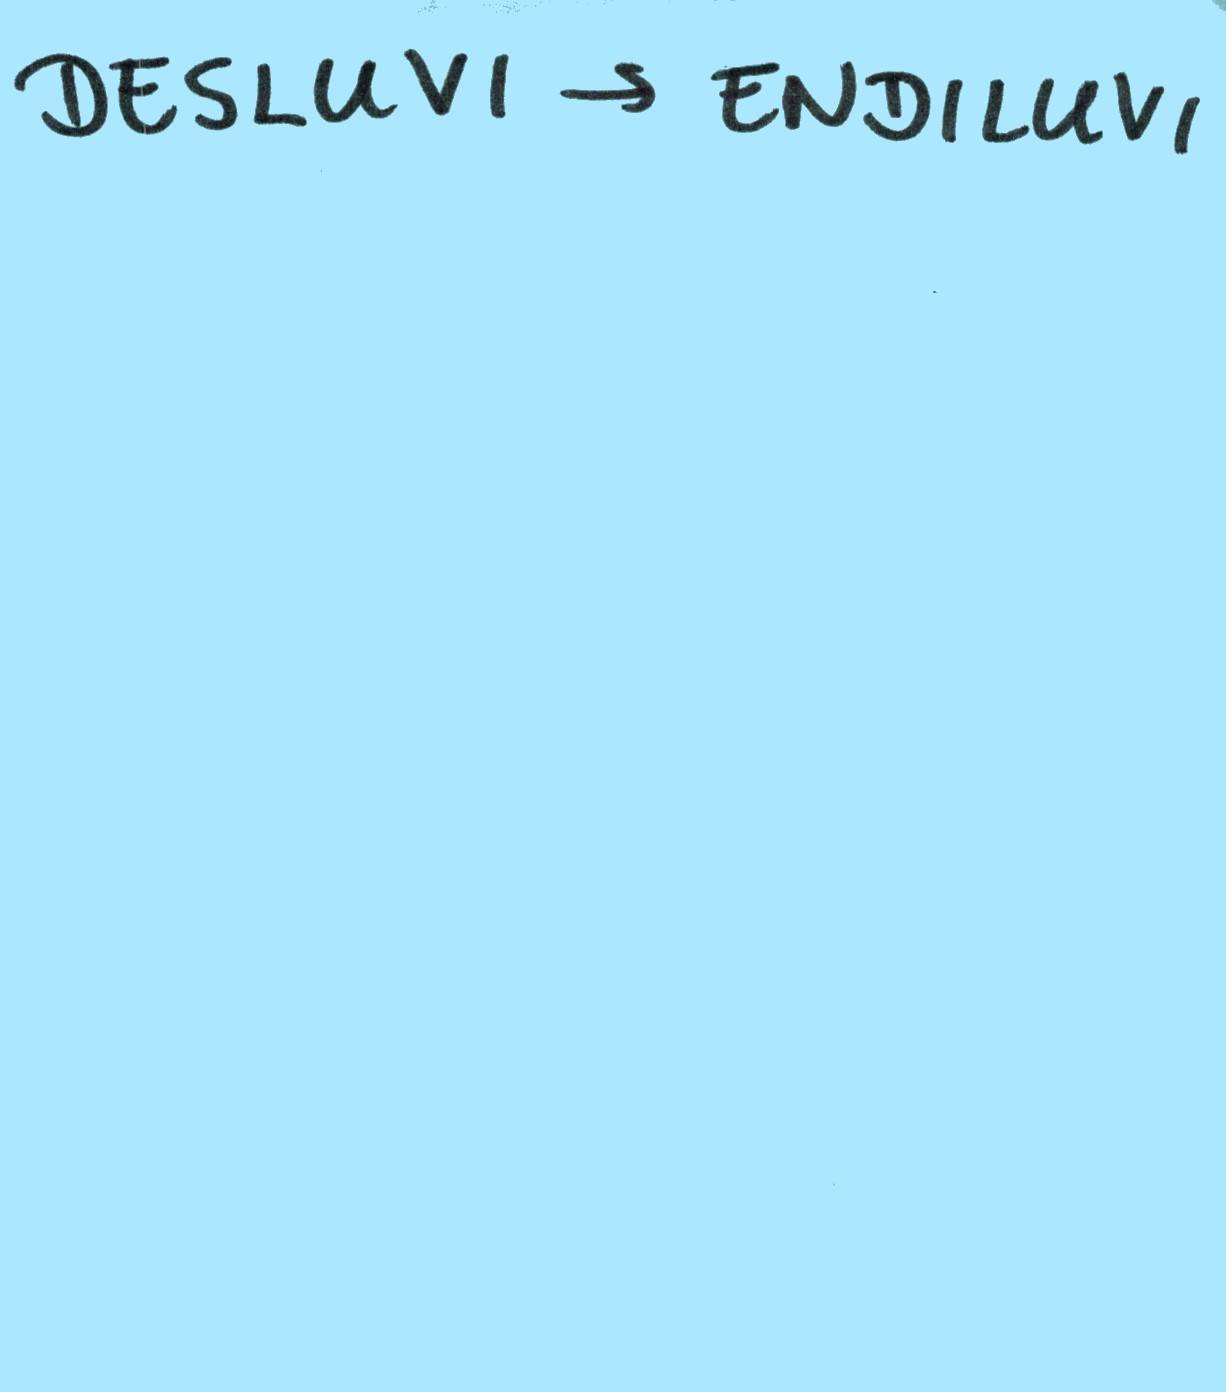 DESLUVI → ENDILUVI